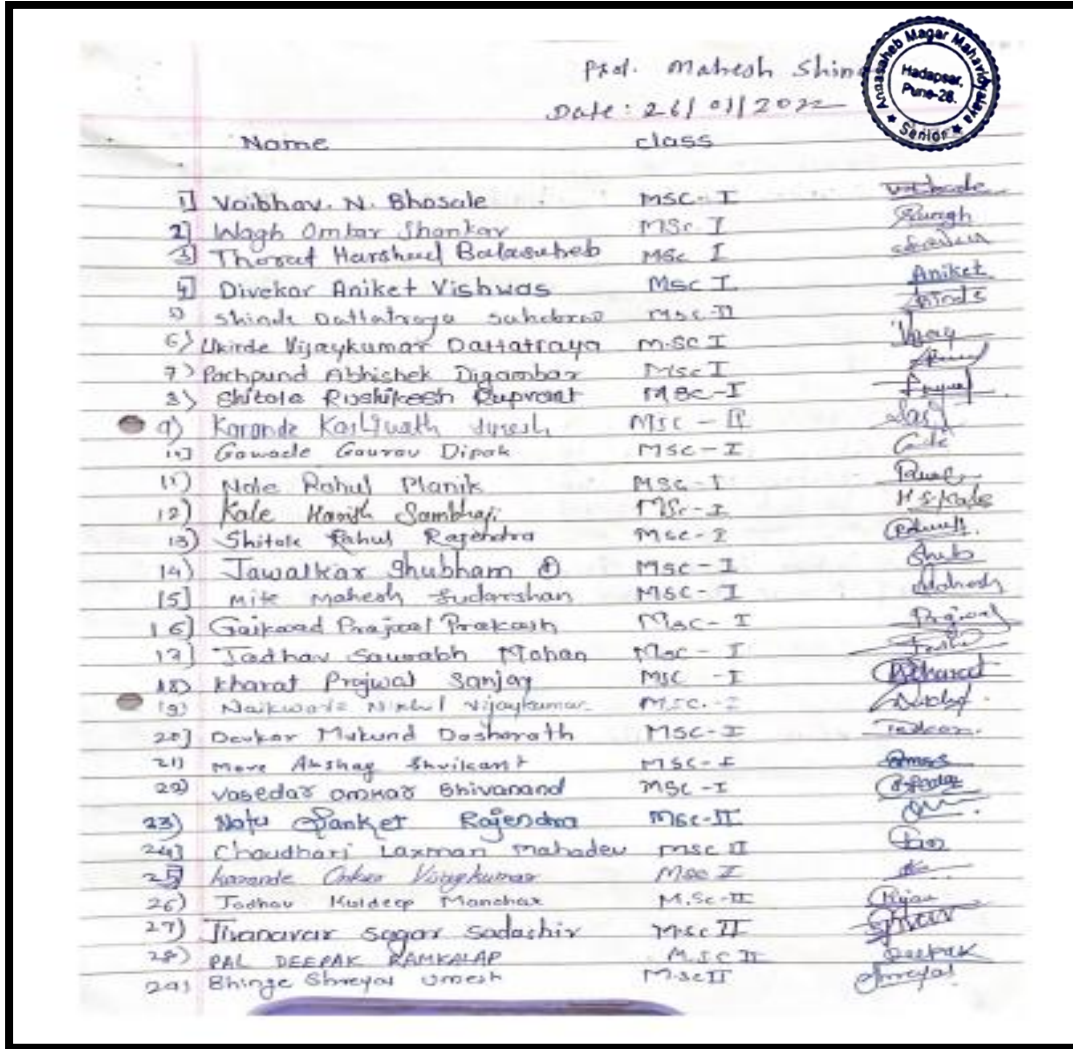 Prof. Mahesh Shin
Annasaheb Magar Mahavidyalaya
Hadapsar,
Pune-28.
Senior
Date: 26/01/2022
Name class
1] Vaibhav. N. Bhosale MSC-I
2] Wagh Omkar Shankar MSc I
3] Thorat Harshad Balasaheb MSc I
4] Divekar Aniket Vishwas Msc I Aniket
5) Shinde Dattatraya Sahebrao Msc-II Shinde
6) Ukirde Vijaykumar Dattatraya M.SC I Vijay
7) Pachpund Abhishek Digambar Msc I
8) Shitole Rushikesh Ruprant MSC-I
9) Karande Kashinath Suresh MSC - II
10] Gawade Gaurav Dipak MSC-I
11) Nale Rahul Manik MSC-I
12) Kale Harish Sambhaji MSc-I H S Kale
13) Shitole Rahul Rajendra MSC-I
14) Jawalkar Shubham D MSC-I Shub
15] Mite Mahesh Sudarshan MSC-I Mahesh
16] Gaikwad Prajwal Prakash MSC-I Prajwal
17] Jadhav Saurabh Mohan MSC-I
18) Kharat Prajwal Sanjay MSC -I Kharat
19) Naikwade Nikhil Vijaykumar M.SC.-I
20] Devkar Mukund Dasharath MSC-I
21) More Akshay Shrikant MSC-I
22) Vasedar Omkar Shivanand MSC-I
23) Natu Sanket Rajendra MSC-II
24] Chaudhari Laxman Mahadev MSC II
25] Karande Onkar Vijaykumar Msc I
26) Jadhav Kuldeep Manohar M.Sc-II
27) Jivanavar Sagar Sadashiv M.sc II
28) PAL DEEPAK RAMKALAP M.SC II Deepak
29) Bhinge Shreyas Umesh M.Sc II Shreyas